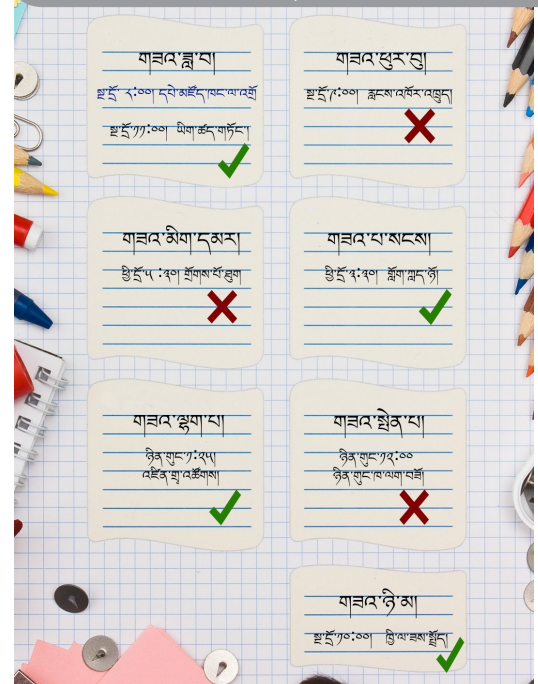 གཟའ་ཟླ་བ།
སྔ་དྲོ་ ༨:༠༠། དཔེ་མཛོད་ཁང་ལ་འགྲོ
སྔ་དྲོ་༡༡:༠༠། ཡིག་ཚད་གཏོང་།
གཟའ་ཕུར་བུ།
སྔ་དྲོ་༩:༠༠། རླངས་འཁོར་འཁྲུད།
གཟའ་མིག་དམར།
ཕྱི་དྲོ་༥ :༣༠། གྲོགས་པོ་ཐུག
གཟའ་པ་སངས།
ཕྱི་དྲོ་༣:༣༠། ཀློག་ཀླད་ཉོ།
གཟའ་ལྷག་པ།
ཉིན་གུང་༡:༢༥།
འཛིན་གྲྭ་འཚོགས།
གཟའ་སྤེན་པ།
ཉིན་གུང་༡༢:༠༠
ཉིན་གུང་ཁ་ལག་བཟོ།
གཟའ་ཉི་མ།
སྔ་དྲོ་༡༠:༠༠། ཁྱི་ལ་ཟས་སྤྲོད།